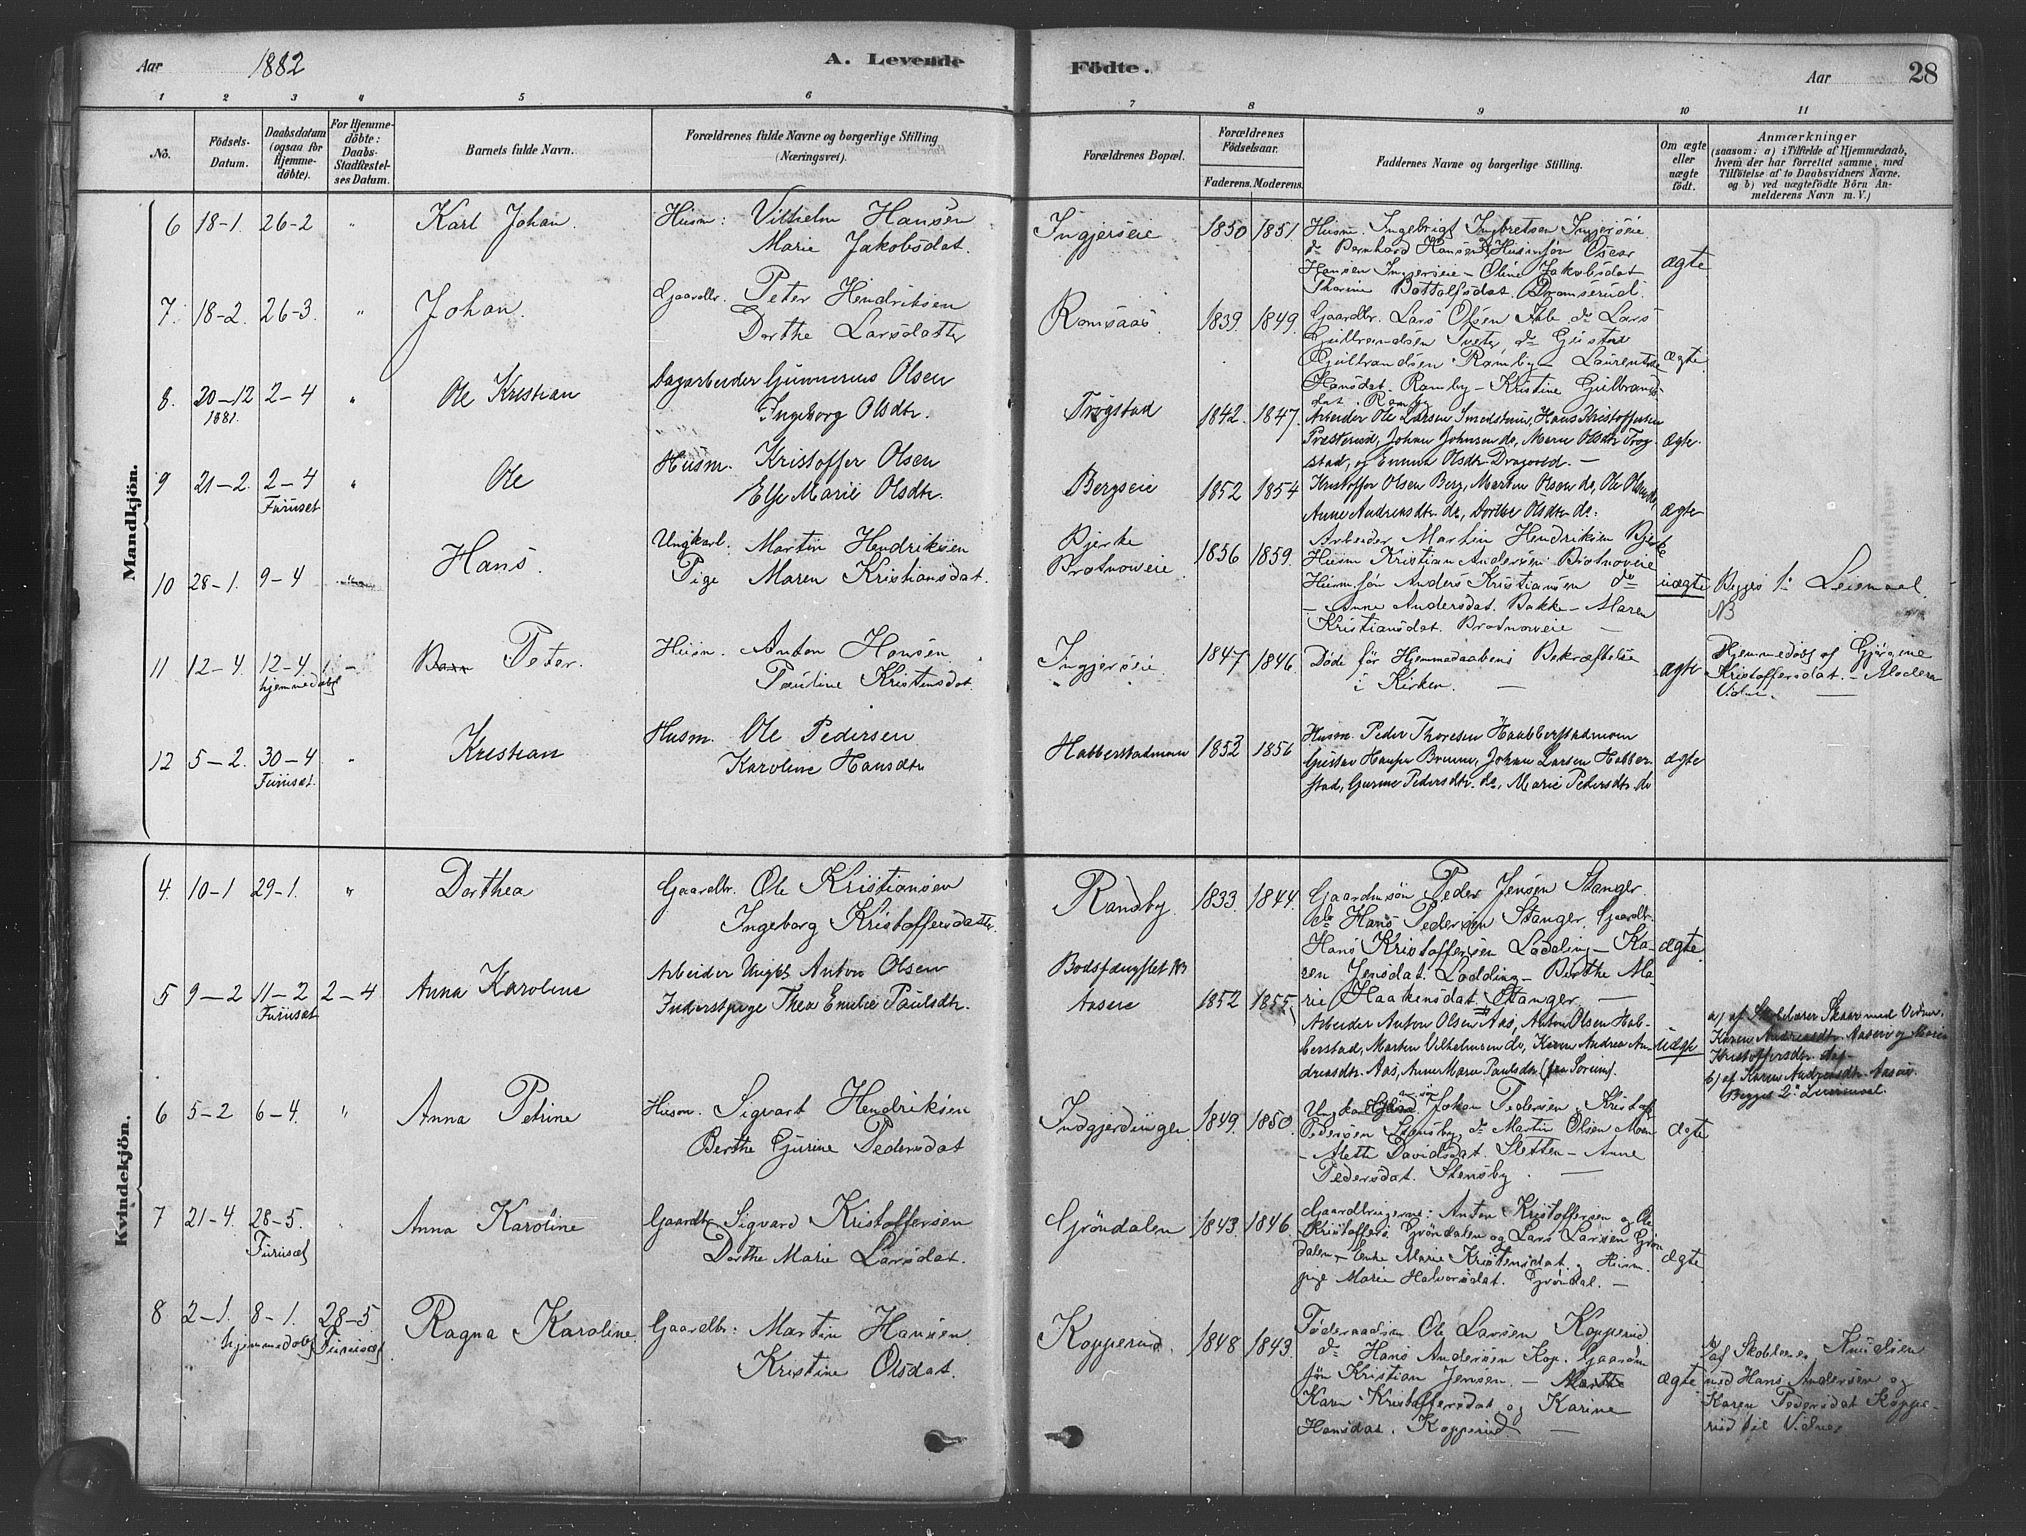 Aar 1882 A. Levende Födte. Aar 28
1 2 3 4 5 6 7 8 9 10 11
No.
Födsels-Datum.
Daabsdatum (ogsaa for Hjemme-döbte).
For Hjemme-döbte: Daabs-Stadfæstel-ses Datum.
Barnets fulde Navn.
Forældrenes fulde Navne og borgerlige Stilling (Næringsvei).
Forældrenes Bopæl.
Forældrenes Födselsaar.
Faderens. Moderens.
Faddernes Navne og borgerlige Stilling.
Om ægte eller uægte födt.
Anmærkninger
(saasom: a) i Tilfælde af Hjemmedaab,
hvem der har forrettet samme, med
Tilföielse af to Daabsvidners Navne.
og b) ved uægtefödte Börn An-
melderens Navn m. V.)
Mandkjön.
6 18-1. 26-2 " Karl Johan. Husm: Vilhelm Hansen
Marie Jakobsdat.
Ingjerseie 1850 1851
Husm. Ingebrigt Ingbretsen Ingjerseie
do Bernhard Hansen Husmsøn Oscar
Hansen Ingjerseie - Oline Jakobsdat
Thorine Bottolfsdat.
ægte
7. 18-2. 26-3. " Johan. Gaardbr. Peter Hendriksen
Dorthe Larsdatter
Romsaas. 1839. 1849.
Gaardbr. Lars Olsen do Lars
Gulbrandsen Tveter do Gustav
Gulbrandsen Ramby - Laurentse
Hansdat. Ramby - Kristine Gulbrands
dat. Ramby
ægte
8. 20-12 1881. 2-4 " Ole Kristian Dagarbeider Gunnerius Olsen
Ingeborg Olsdtr.
Trøgstad 1842. 1847.
Arbeider Ole Larsen Hans Kristoffersen
Præsterud, Johan Johnsen do, Maren Olsdtr Trøg-
stad, og Emma Olsdtr. -
ægte.
9 21-2. 2-4 Furuset " Ole Husm. Kristoffer Olsen
Else Marie Olsdtr.
Bergseie 1852 1854
Kristoffer Olsen Berg, Martin Olsen do, Ole Olsen do,
Anne Andreasdtr. do, Dorthe Olsdtr. do.
ægte
10 28-1. 9-4 " Hans. Ungkarl: Martin Hendriksen
Pige Maren Kristiansdat.
Bjerke
1856 1859.
Arbeider Martin Hendriksen Bjerke
Husm Kristian Andersen
Husmsøn Anders Kristiansen do
- Anne Andersdat. Bakke - Maren
Kristiansdat.
uægte
Begges 1ste Leiemaal.
NB
11 12-4. 12-4. hjemmedøbt - Barn Peter. Husm. Anton Hansen
Pauline Kristensdat.
Ingjerseie 1847 1846.
Døde før Hjemmedaabens Bekræftelse
i Kirken. -
ægte
Hjemmedøbt af Gjørgine
Kristoffersdat. - Moderen
Vidne. -
12 5-2. 30-4 Furuset. " Kristian Husm. Ole Pedersen
Karoline Hansdtr
Habberstadmoen 1852 1856
Husm. Peder Thoresen Haabberstadmoen
Gustav Hansen Johan Larsen Habber-
stad, Gurine Pedersdtr. do, Marie Pedersdtr. do
ægte
Kvindekjön.
4 10-1 29-1. " Dorthea Gaardbr. Ole Kristiansen
Ingeborg Kristoffersdatter.
Randby. 1833. 1844.
Gaardmsøn Peder Jensen Stanger
do Hans Pedersen Stanger. Gaardbr.
Hans Kristoffersen Lødding - Ka-
ren Jensdat. Lødding - Berthe Ma-
rie Haakensdat. Stanger. -
ægte.
5 9-2 11-2 Furuset 2-4 Anna Karoline Arbeider Ungk Anton Olsen
Inderstpige Thea Emilie Paulsdtr.
Bodsfængslet NB
Aaseie 1852 1855.
Arbeider Anton Olsen Aas, Anton Olsen Hab-
berstad, Martin Vilhelmsen do, Karen Andrea An-
dreasdtr. Aas, Anne Marie Paulsdtr (fra Sørum).
uægte
a) af Skolelærer Skaar med Vidner.
Karen Andreasdtr. Aaseie og Maria
Kristoffersdtr.
b) af Karen Andreasdtr. Aaseie.
Begges 2det Leiermaal.
6 5-2 6-4. " Anna Petrine Husm. Sigvart Hendriksen
Berthe Gurine Pedersdat
Indgjerdingen 1849. 1850.
Johan Pedersen, Kristof
Pedersen Stensby, do Martin Olsen Moen
- Mette Davidsdat. Sletten - Anne
Pedersdat. Stensby.
ægte
7 21-4. 28-5. Furuset " Anna Karoline Gaardbr Sigvard Kristoffersen
Dorthe Marie Larsdat.
Grøndalen 1843. 1846.
Gaardbrugerne: Anton Kristoffersen og Ole
Kristoffers. Grøndalen og Lars Larsen Grøn
dalen - Enke Marie Kristensdat. og Husm.
pige Marie Halvorsdat. Grøndal. -
ægte
8 2-1. 8-1. hjemmedøbt 28-5 Furuset. Ragna Karoline Gaardbr: Martin Hansen
Kristine Olsdat.
Kopperud. 1848 1843.
Føderaadsm Ole Larsen Kopperud.
do Hans Andersen Kop. Gaardm
søn Kristian Jensen. - Marthe
Karen Kristoffersdat og Karine
Hansdat. Kopperud -
ægte
af Skolelærer Knudsen
med Hans Andersen og
Karen Pedersdat Koppe-
rud til Vidner